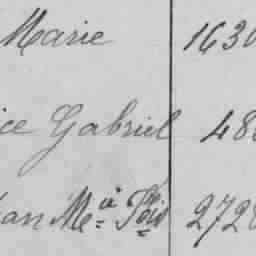 Marie 1630
ice Gabriel 48
an M.ie Fois 272